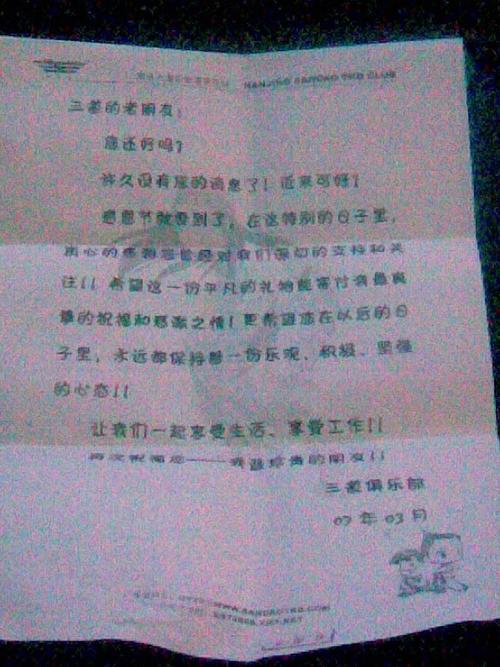 NANJING SANDAO TKD CLUB
三道的老朋友:
您还好吗?
许久没有您的消息了! 近来可好?
感恩节就要到了, 在这特别的日子里,
衷心的感谢您曾经对我们深切的支持和关
注!! 希望这一份平凡的礼物能寄付着最真
挚的祝福和感激之情! 更希望您在以后的日
子里, 永远都保持着一份乐观、积极、坚强
的心态!!
让我们一起享受生活、享受工作!!
再次祝福您——我最珍贵的朋友!!
三道俱乐部
07 年 03 月
WWW.SANDAOTKD.COM